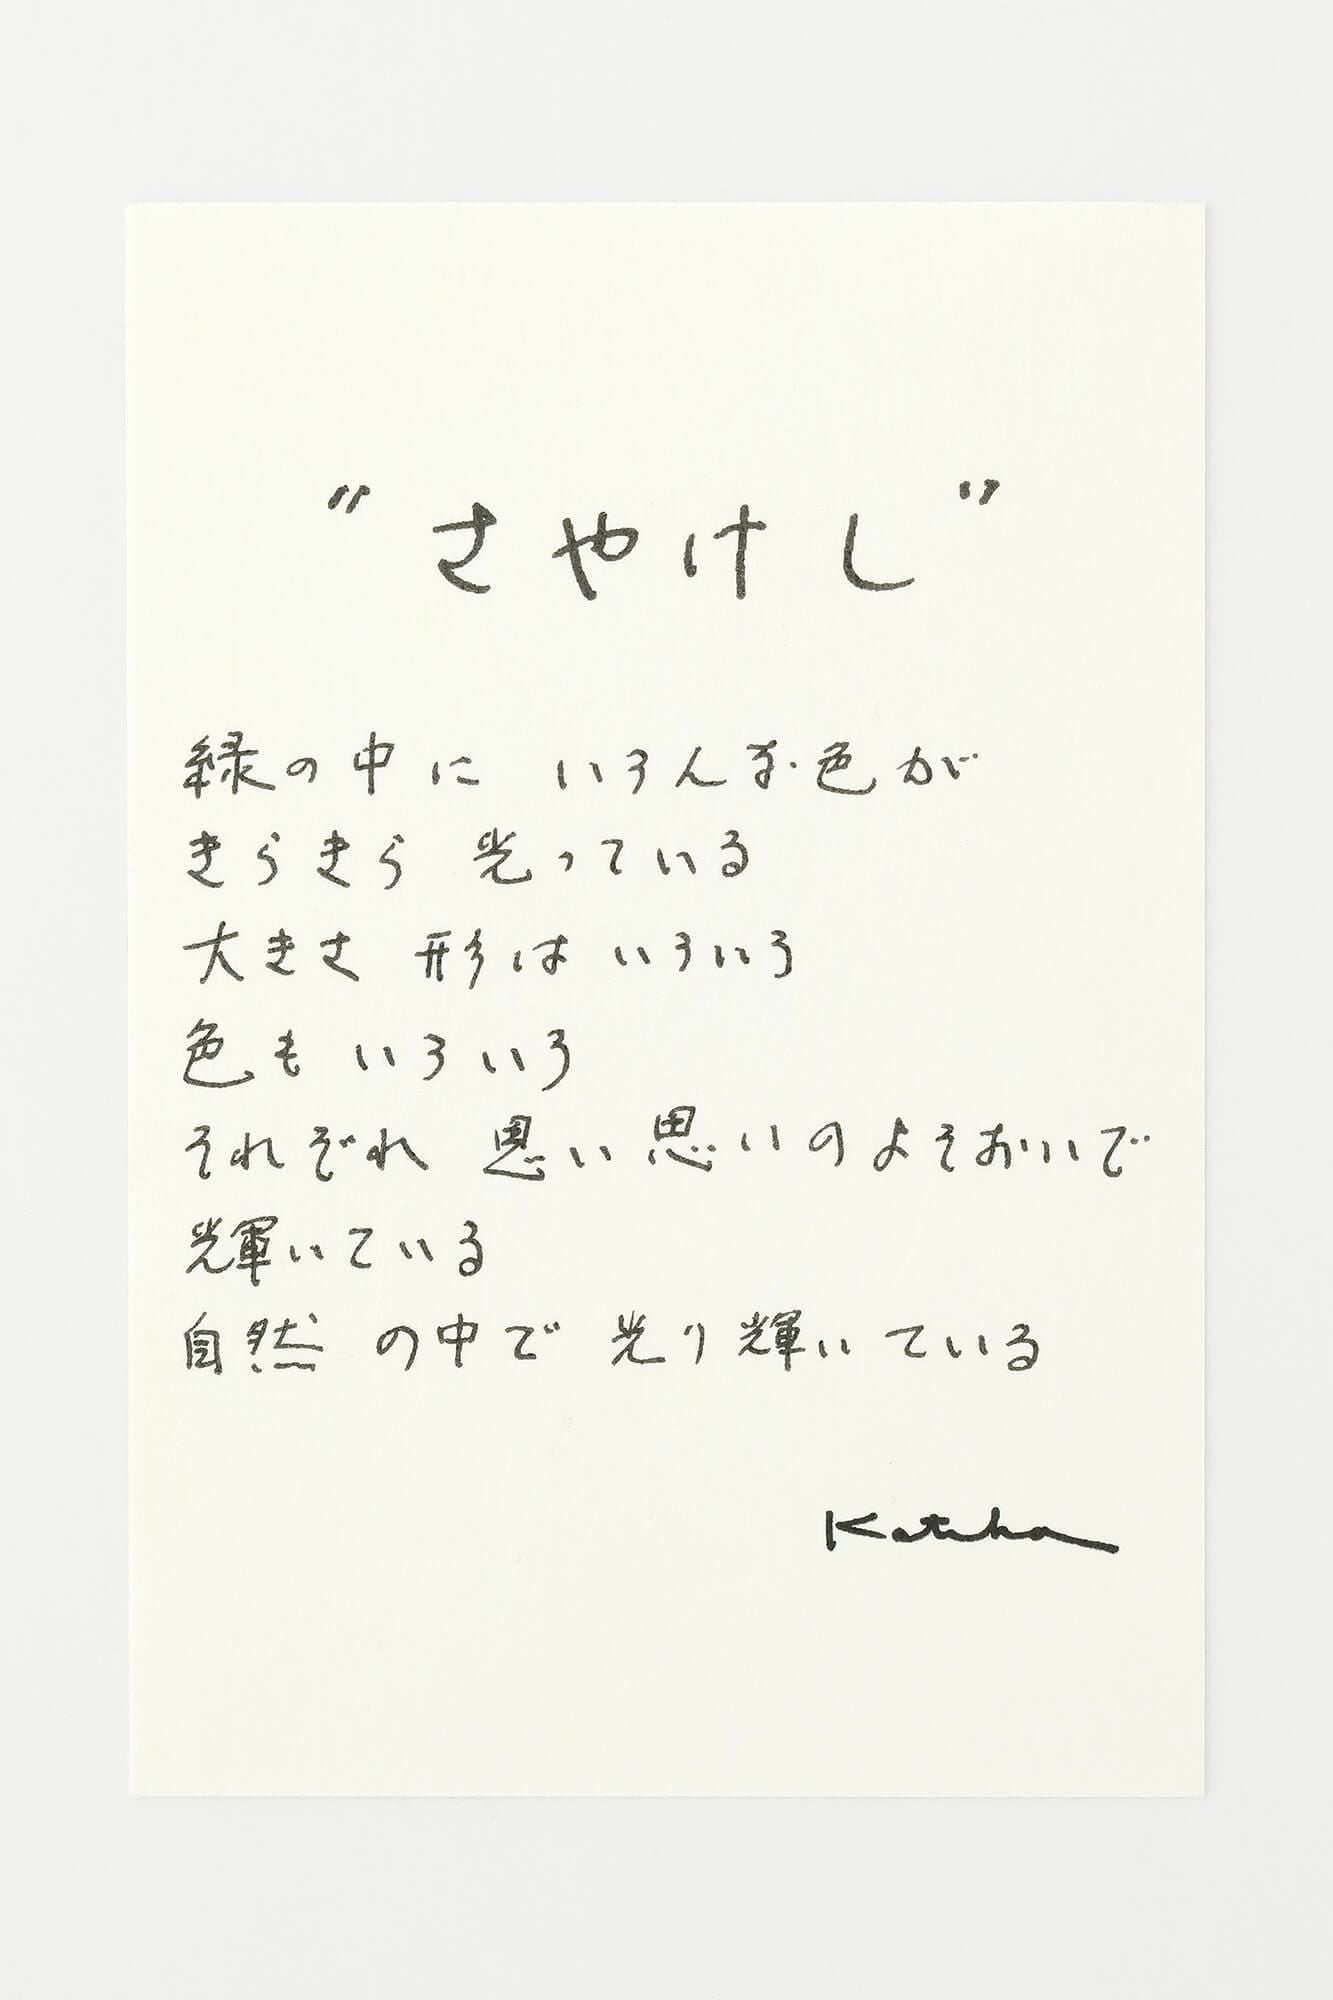 "さやけし"
緑の中に いろんな色が
きらきら 光っている
大きさ 形は いろいろ
色も いろいろ
それぞれ 思い思いのよそおいで
輝いている
自然 の中で 光り輝いている